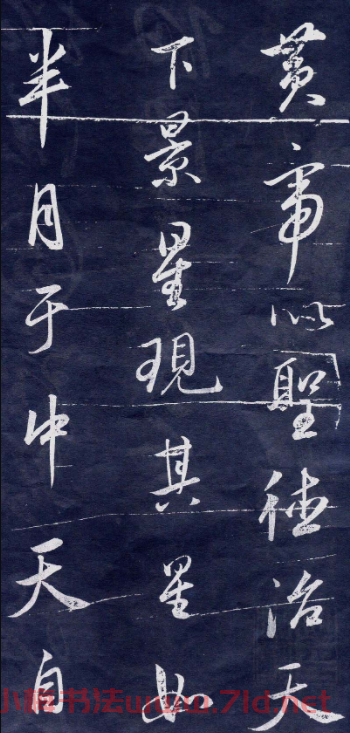 黄帝以聖德治天
下景星現其星如
半月于中天自
小楷书法www.7ld.net